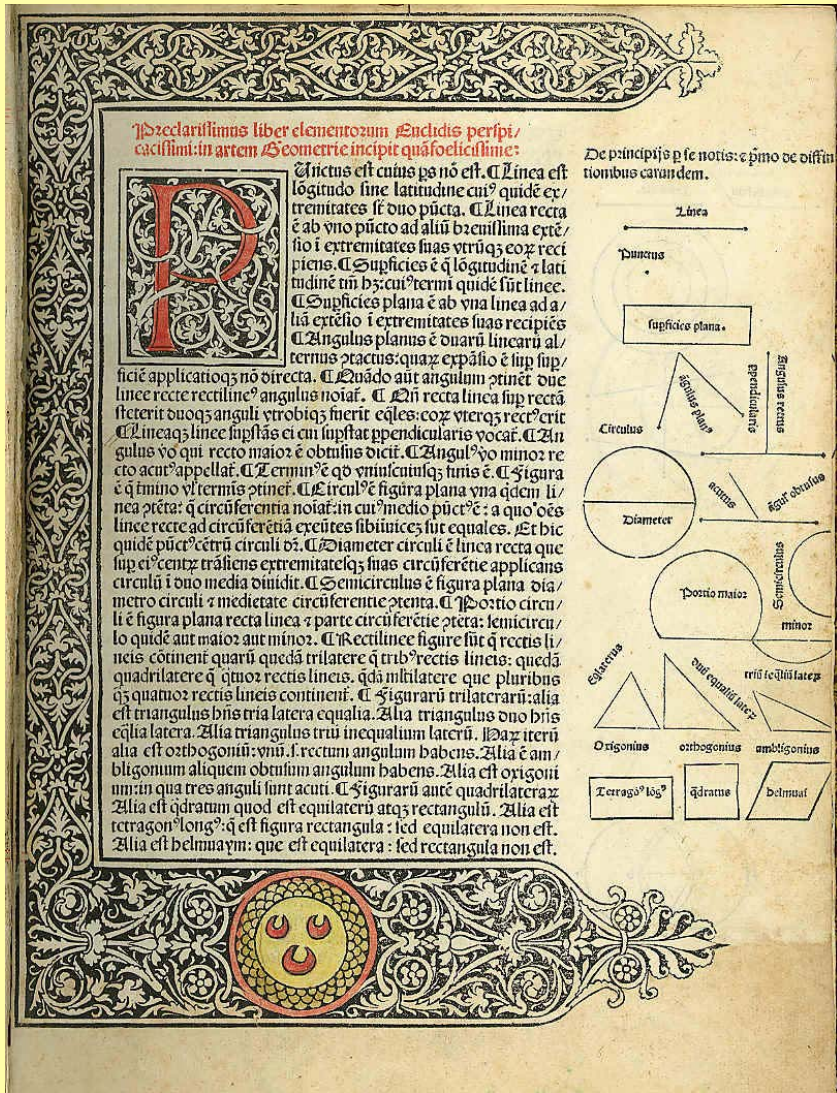 Preclarissimus liber elementorum Euclidis perspi/
cacissimi: in artem Geometrie incipit quāfoelicissime:
PUnctus est cuius ps nō est. ¶ Linea est
lōgitudo sine latitudine cuiꝰ quidē ex/
tremitates st̄ duo pūcta. ¶ Linea recta
ē ab vno pūcto ad aliū breuissima extē/
sio ī extremitates suas vtrūqꝫ eoꝝ reci
piens. ¶ Supficies ē q̄ lōgitudinē ⁊ lati
tudinē tm̄ hꝫ: cuiꝰ termi quidē sūt linee.
¶ Supficies plana ē ab vna linea ad a/
liā extēsio ī extremitates suas recipiēs
¶ Angulus planus ē duarū linearū al/
ternus ꝯtactus: quaꝝ expāsio ē sup sup/
ficiē applicatioqꝫ nō directa. ¶ Quādo aūt angulum ꝯtinēt due
linee recte rectilineꝰ angulus noiat̄. ¶ Qn̄ recta linea sup rectā
steterit duoqꝫ anguli vtrobiqꝫ fuerit eq̄les: eoꝝ vterqꝫ rectꝰ erit
¶ Lineaqꝫ linee supstās ei cui supstat ppendicularis vocat̄. ¶ An
gulus vo qui recto maior ē obtusus dicit̄. ¶ Angulꝰ vo minor re
cto acutꝰ appellat̄. ¶ Terminꝰ ē qd vniuscuiusqꝫ finis ē. ¶ Figura
ē q̄ tmino vl terminis ꝯtinet̄. ¶ Circulꝰ ē figura plana vna qdem li/
nea ꝯtēta: q̄ circūferentia noiat̄: in cuiꝰ medio pūctꝰ ē: a quo oēs
linee recte ad circūferētiā exeūtes sibiinuicē sut equales. Et hic
quidē pūctꝰ cētrū circuli dr̄. ¶ Diameter circuli ē linea recta que
sup eiꝰ centꝝ trāsiens extremitatesqꝫ suas circūferētie applicans
circulū ī duo media diuidit. ¶ Semicirculus ē figura plana dia/
metro circuli ⁊ medietate circūferentie ꝯtenta. ¶ Portio circu/
li ē figura plana recta linea ⁊ parte circūferētie ꝯtēta: semicircu/
lo quidē aut maior aut minor. ¶ Rectilinee figure sūt q̄ rectis li/
neis cōtinent̄ quarū quedā trilatere q̄ tribꝰ rectis lineis: quedā
quadrilatere q̄ qtuor rectis lineis. qdā mltilatere que pluribus
qꝫ quatuor rectis lineis continent̄. ¶ Figurarū trilaterarū: alia
est triangulus hn̄s tria latera equalia. Alia triangulus duo hn̄s
eq̄lia latera. Alia triangulus triū inequalium laterū. Haꝝ iterū
alia est orthogoniū: vnū .s. rectum angulum habens. Alia ē am/
bligonium aliquem obtusum angulum habens. Alia est oxigoni
um: in qua tres anguli sunt acuti. ¶ Figurarū autē quadrilateraꝝ
Alia est q̄dratum quod est equilaterū atqꝫ rectangulū. Alia est
tetragonꝰ longꝰ: q̄ est figura rectangula: sed equilatera non est.
Alia est helmuaym: que est equilatera: sed rectangula non est.
De principijs p se notis: ⁊ pmo de diffini
tionibus earundem.
Linea
Punctus
supficies plana.
āgulus planꝰ
ppendicularis
angulus rectus
Circulus
Diameter
acutus
āgulꝰ obtusus
Portio maior
Semicirculus
minor
Eqlaterus
duū equaliū lateꝝ
triū īeq̄liū lateꝝ
Oxigonius
orthogonius
ambligonius
Tetragōꝰ lōgꝰ
q̄dratus
helmuai